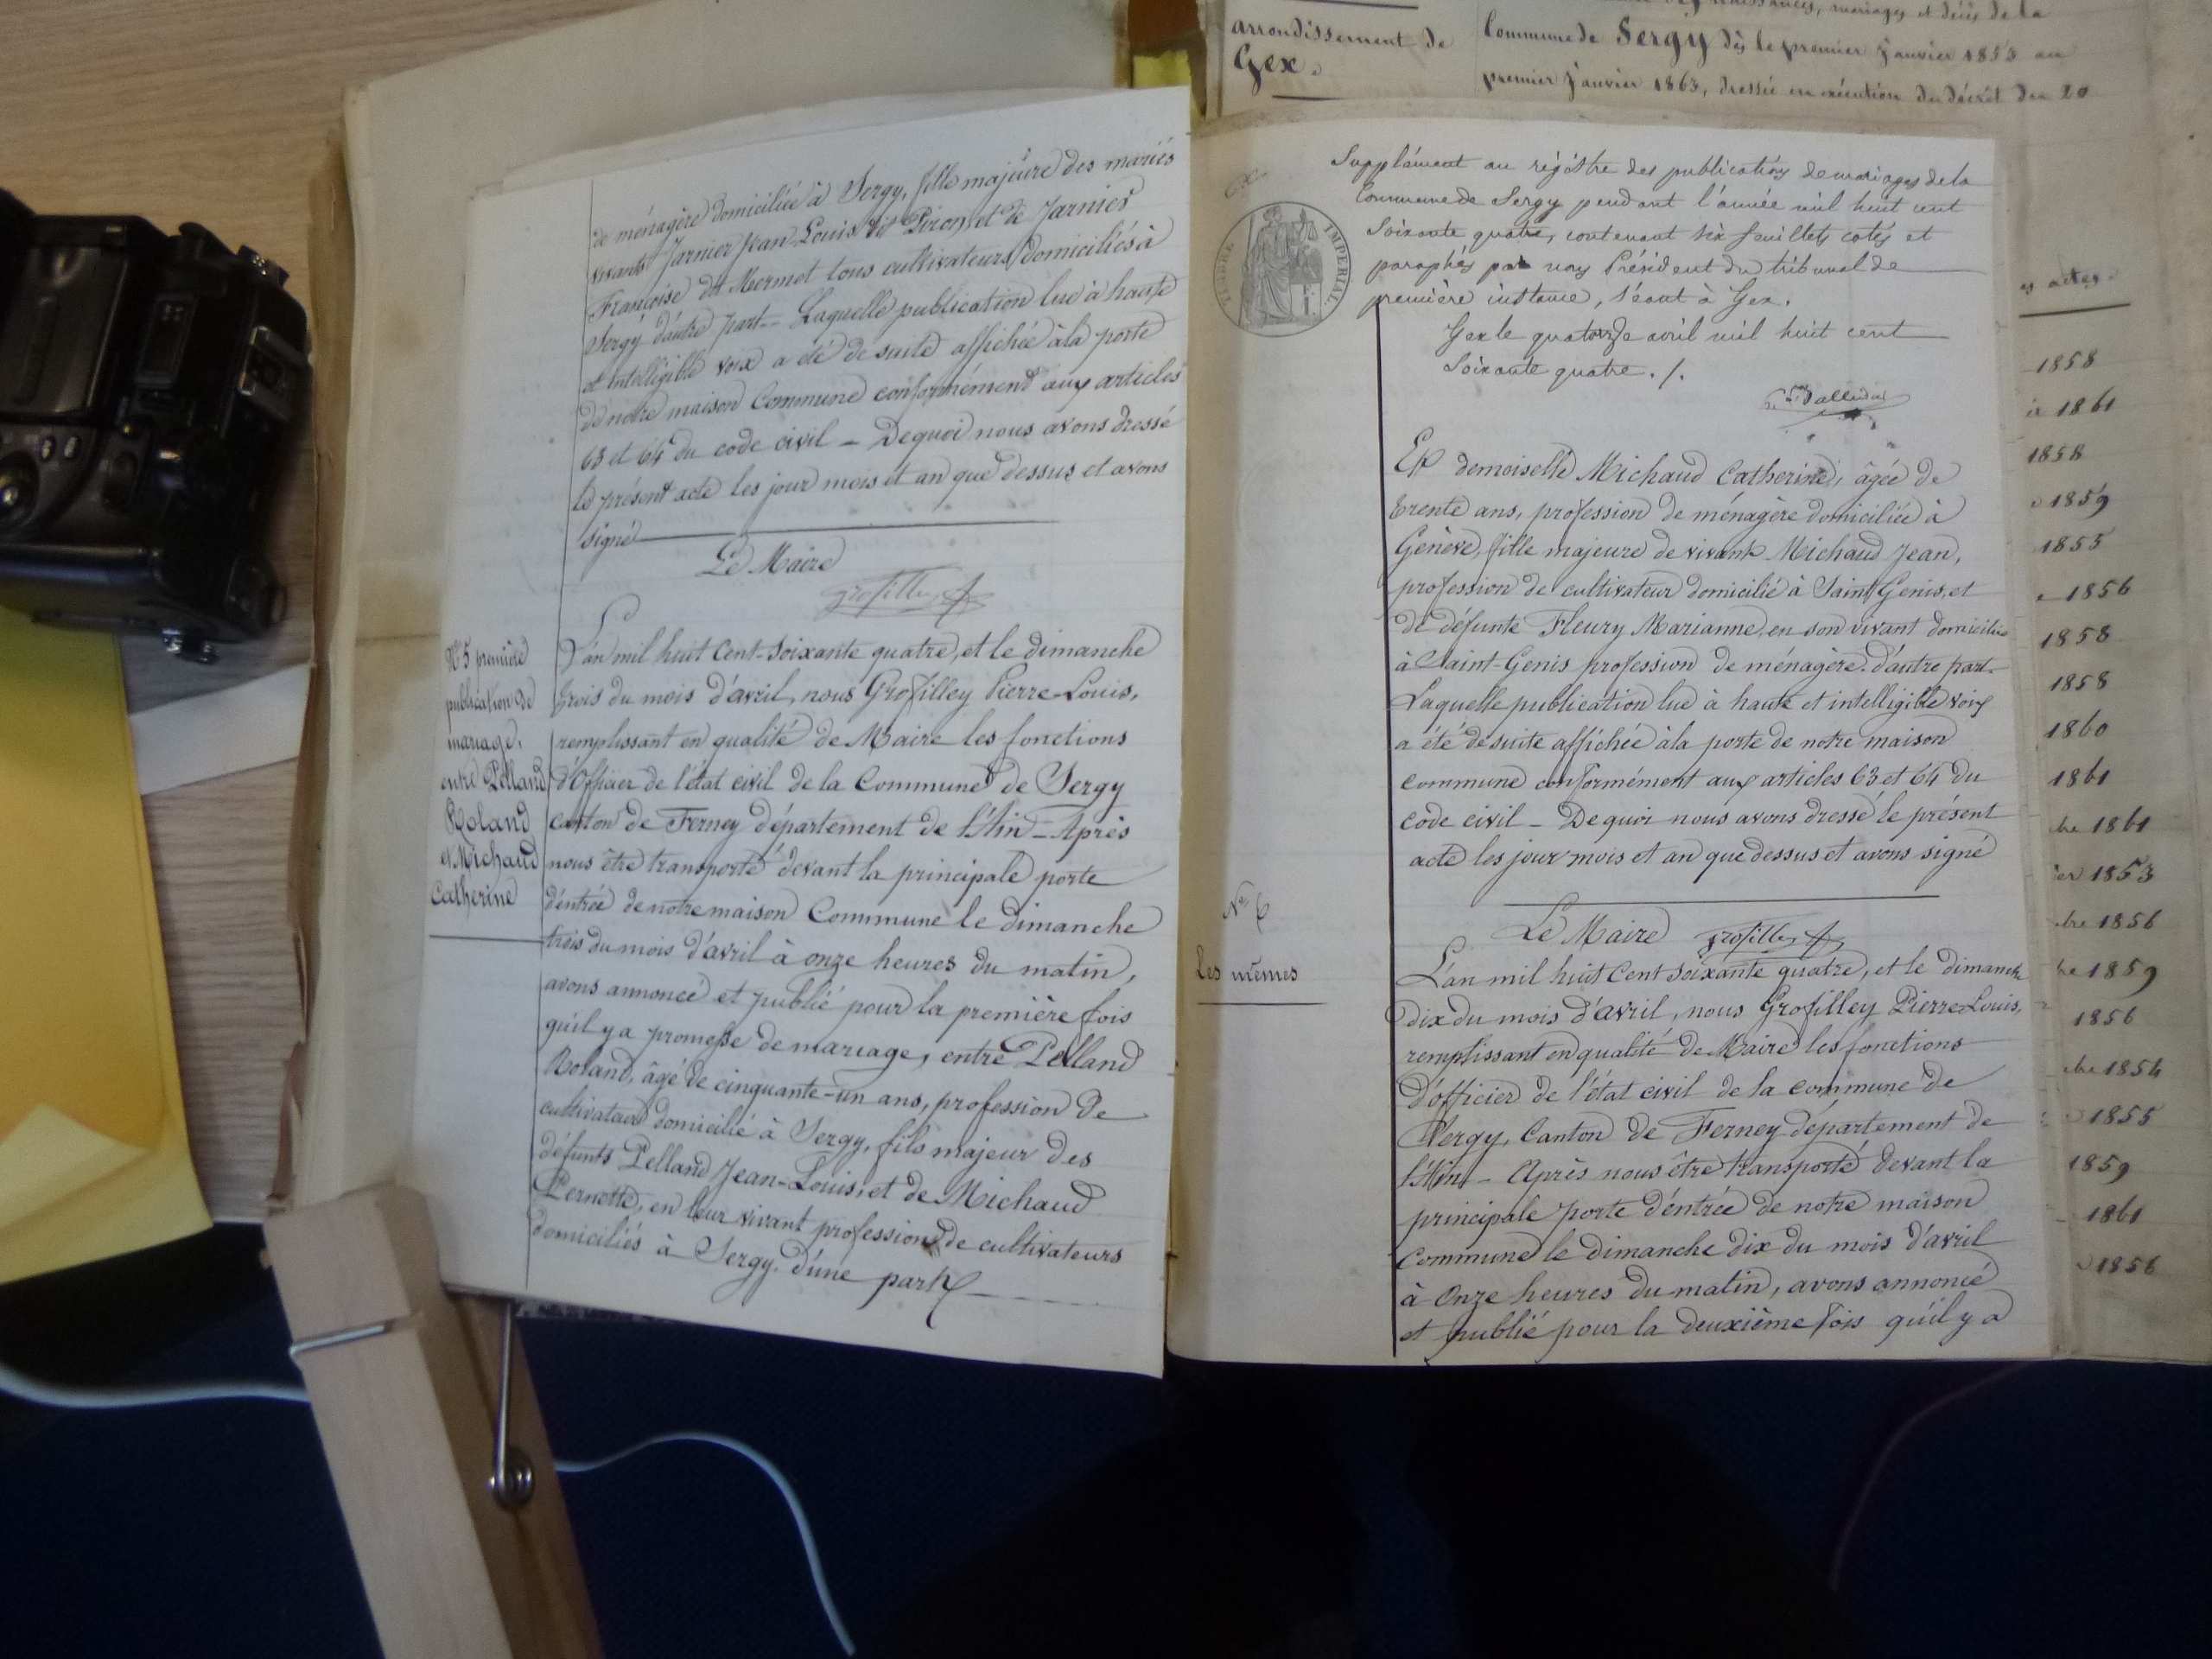 de ménagère domiciliée à Sergy, fille majeure des mariés
vivants Jarnier Jean Louis dit Piron, et de Jarnier
Françoise dit Mermet tous cultivateurs domiciliés à
Sergy d'autre part - Laquelle publication lue à haute
et intelligible voix a été de suite affichée à la porte
de notre maison Commune conformément aux articles
63 et 64 du code civil - De quoi nous avons dressé
le présent acte les jour mois et an que dessus et avons
signé
Le Maire
Grosfilley
Nº 5 première
publication de
mariage,
entre Pelland
Roland
et Michaud
Catherine
L'an mil huit Cent-Soixante quatre, et le dimanche
trois du mois d'avril, nous Grosfilley Pierre-Louis,
remplissant en qualité de Maire les fonctions
d'Officier de l'état civil de la Commune de Sergy
canton de Ferney département de l'Ain - Après
nous être transporté devant la principale porte
d'éntrée de notre maison Commune le dimanche
trois du mois d'avril à onze heures du matin,
avons annoncé et publié pour la première fois
qu'il y a promesse de mariage, entre Pelland
Roland, âgé de cinquante-un ans, profession de
cultivateur domicilié à Sergy, fils majeur des
défunts Pelland Jean-Louis, et de Michaud
Pernette, en leur vivant profession de cultivateurs
domiciliés à Sergy. d'une part
arrondissement de
Gex.
naissances, mariages et décès de la
Commune de Sergy dès le premier Janvier 1853 au
premier Janvier 1863, dressée en exécution du décret du 20
TIMBRE IMPERIAL
Supplément au régistre des publications de mariages de la
Commune de Sergy pendant l'année mil huit cent
Soixante quatre, contenant six feuillets cotés et
paraphés par nous Président du tribunal de
première instance, séant à Gex.
Gex le quatorze avril mil huit cent
Soixante quatre ./.
Et demoiselle Michaud Catherine, âgée de
trente ans, profession de ménagère domiciliée à
Genève, fille majeure de vivant Michaud Jean,
profession de cultivateur domicilié à Saint Genis, et
de défunte Fleury Marianne, en son vivant domiciliée
à Saint-Genis profession de ménagère d'autre part -
Laquelle publication lue à haute et intelligible voix
a été de suite affichée à la porte de notre maison
commune conformément aux articles 63 et 64 du
code civil - De quoi nous avons dressé le présent
acte les jour mois et an que dessus et avons signé
Le Maire Grosfilley
Nº 6
Les mêmes
L'an mil huit Cent soixante quatre, et le dimanche
dix du mois d'avril, nous Grosfilley Pierre-Louis,
remplissant en qualité de Maire les fonctions
d'officier de l'état civil de la commune de
Sergy, Canton de Ferney département de
l'Ain - Après nous être transporté devant la
principale porte d'éntrée de notre maison
Commune le dimanche dix du mois d'avril
à Onze heures du matin, avons annoncé
et publié pour la deuxième fois qu'il y a
actes
1858
1861
1858
1859
1855
1856
1858
1858
1860
1861
bre 1861
ier 1853
bre 1856
bre 1859
1856
bre 1854
1855
1859
1861
1856